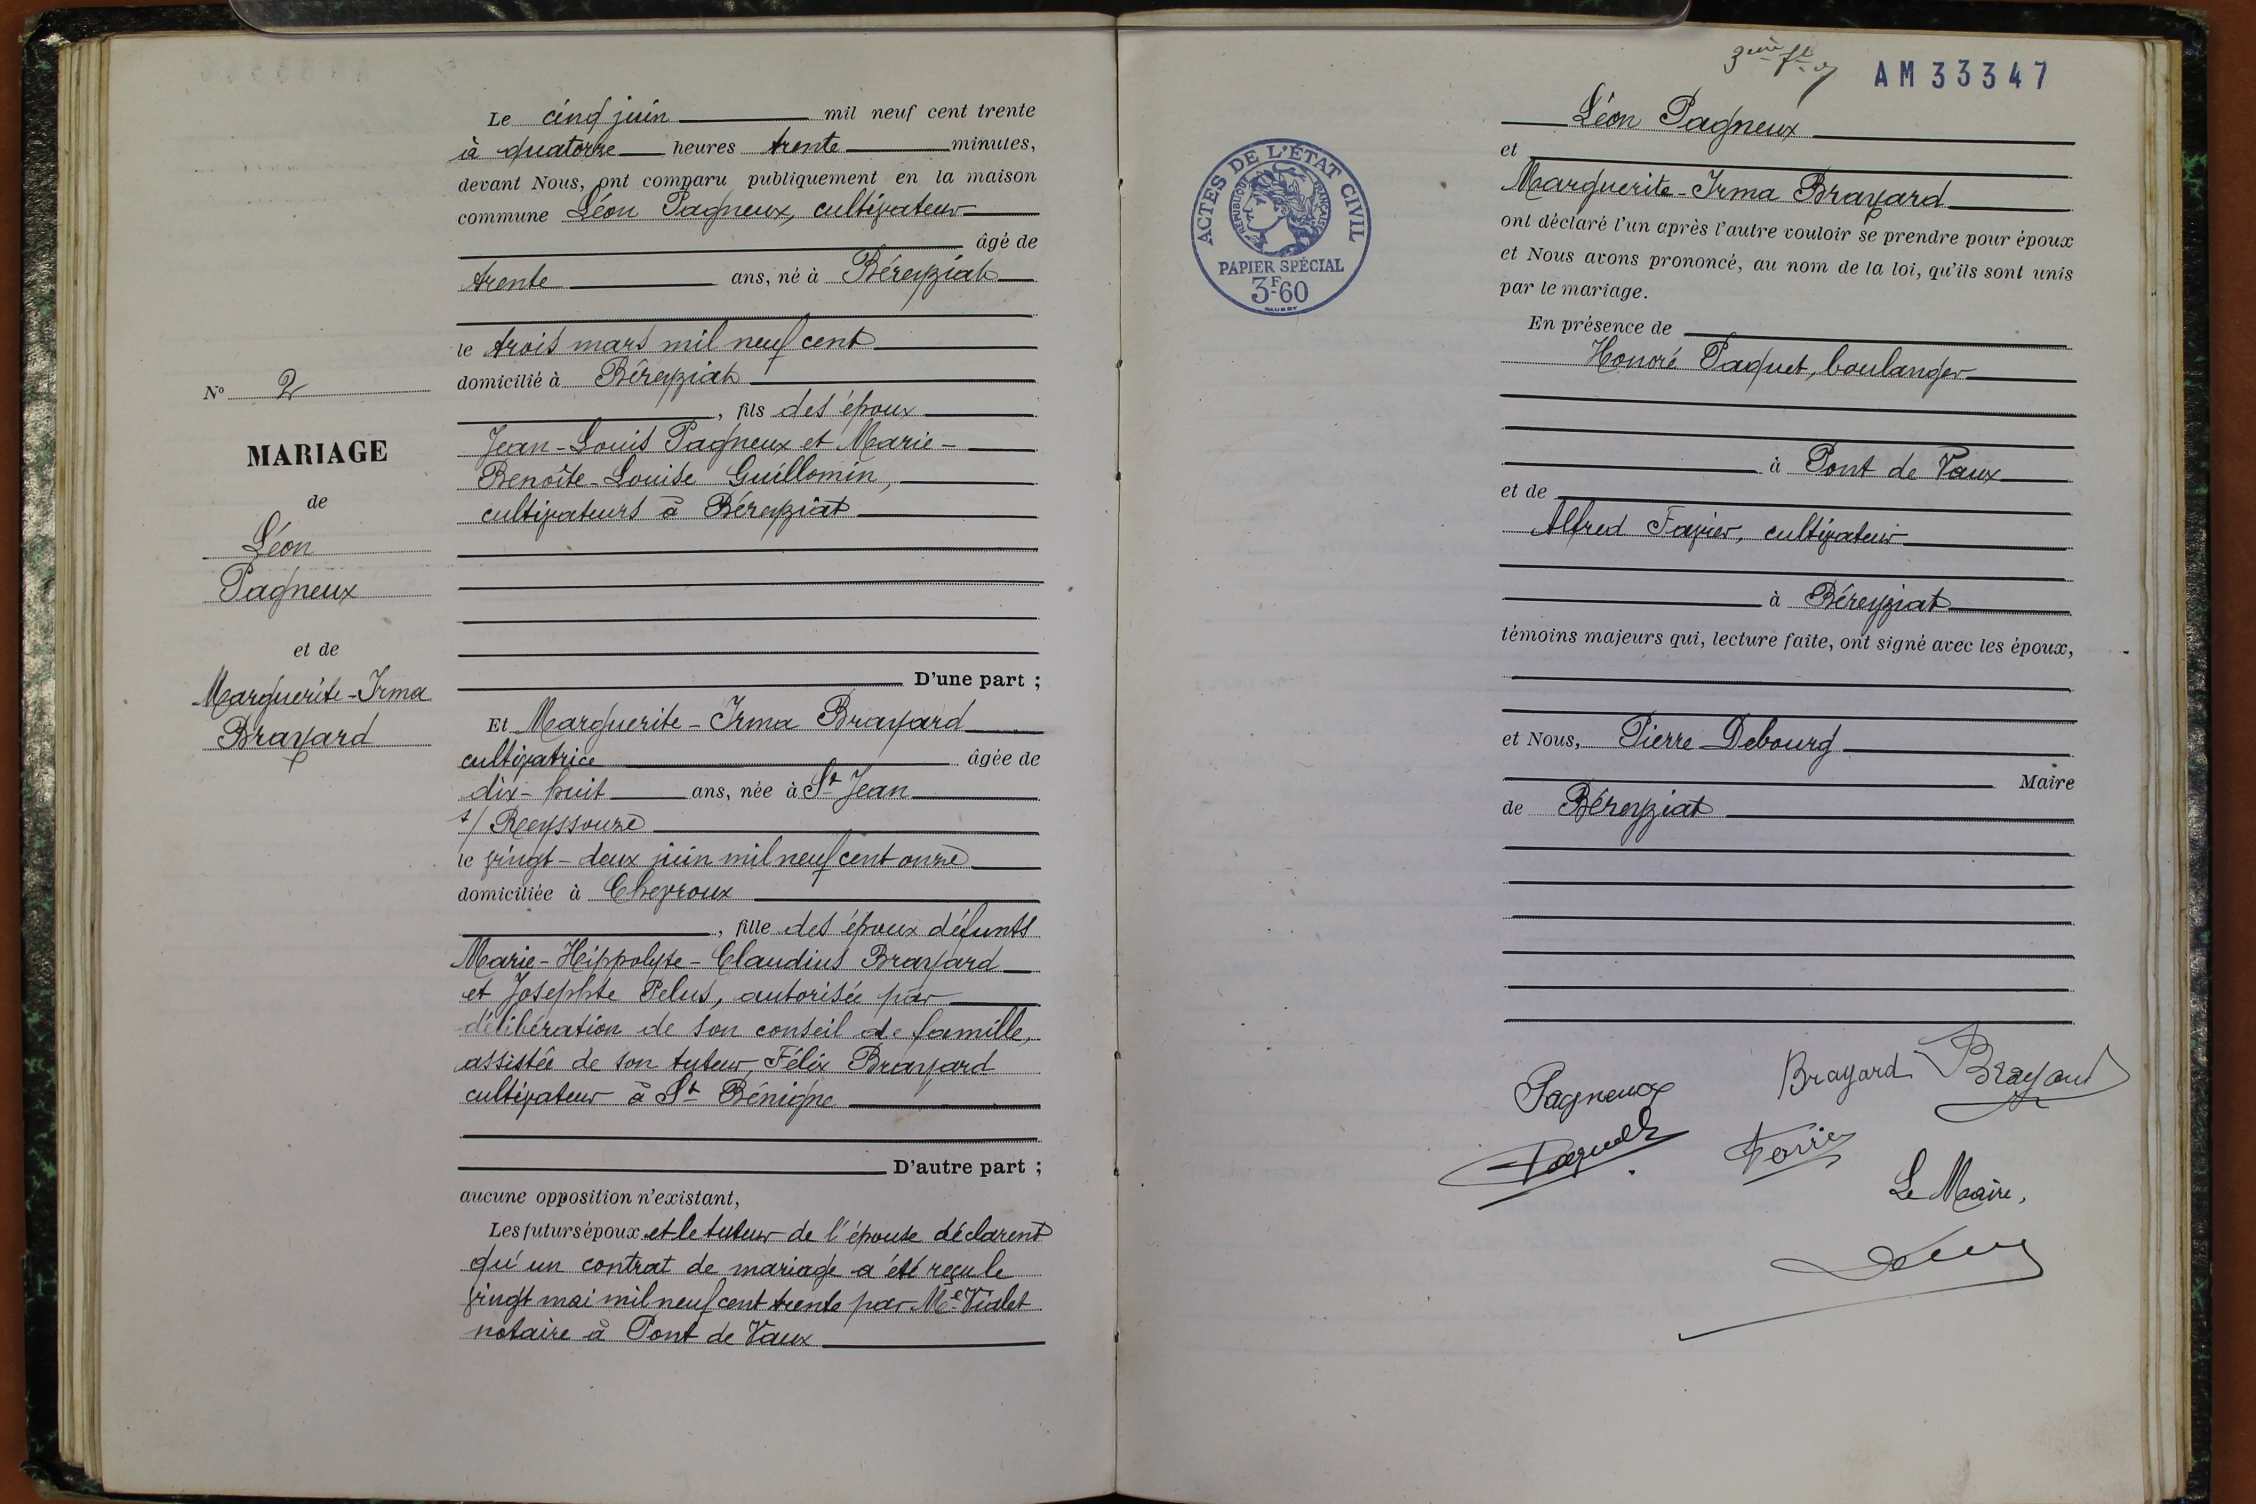 Le cinq juin mil neuf cent trente
à quatorze heures trente minutes,
devant Nous, ont comparu publiquement en la maison
commune Léon Pagneux, cultivateur
âgé de
trente ans, né à Béreyziat
le trois mars mil neuf cent
domicilié à Béreyziat
, fils des époux
Jean-Louis Pagneux et Marie-
Benoîte-Louise Guillomin,
cultivateurs à Béreyziat
D'une part ;
Et Marguerite-Irma Brayard
cultivatrice âgée de
dix-huit ans, née à St Jean
s/ Reyssouze
le vingt-deux juin mil neuf cent onze
domiciliée à Chevroux
, fille des époux défunts
Marie-Hippolyte-Claudius Brayard
et Josephte Pelus, autorisée par
délibération de son conseil de famille,
assistée de son tuteur, Félix Brayard
cultivateur à St Bénigne
D'autre part ;
aucune opposition n'existant,
Les futurs époux et le tuteur de l'épouse déclarent
qu'un contrat de mariage a été reçu le
vingt mai mil neuf cent trente par Me Vialet
notaire à Pont de Vaux
No 2
MARIAGE
de
Léon
Pagneux
et de
Marguerite-Irma
Brayard
AM33347
ACTES DE L'ÉTAT CIVIL
RÉPUBLIQUE FRANÇAISE
PAPIER SPÉCIAL
3F60
Léon Pagneux
et
Marguerite-Irma Brayard
ont déclaré l'un après l'autre vouloir se prendre pour époux
et Nous avons prononcé, au nom de la loi, qu'ils sont unis
par le mariage.
En présence de
Honoré Paquet, boulanger
à Pont de Vaux
et de
Alfred Favier, cultivateur
à Béreyziat
témoins majeurs qui, lecture faite, ont signé avec les époux,
et Nous, Pierre Debourg
Maire
de Béreyziat
Pagneux
Brayard Brayard
Paquet
Favier
Le Maire,